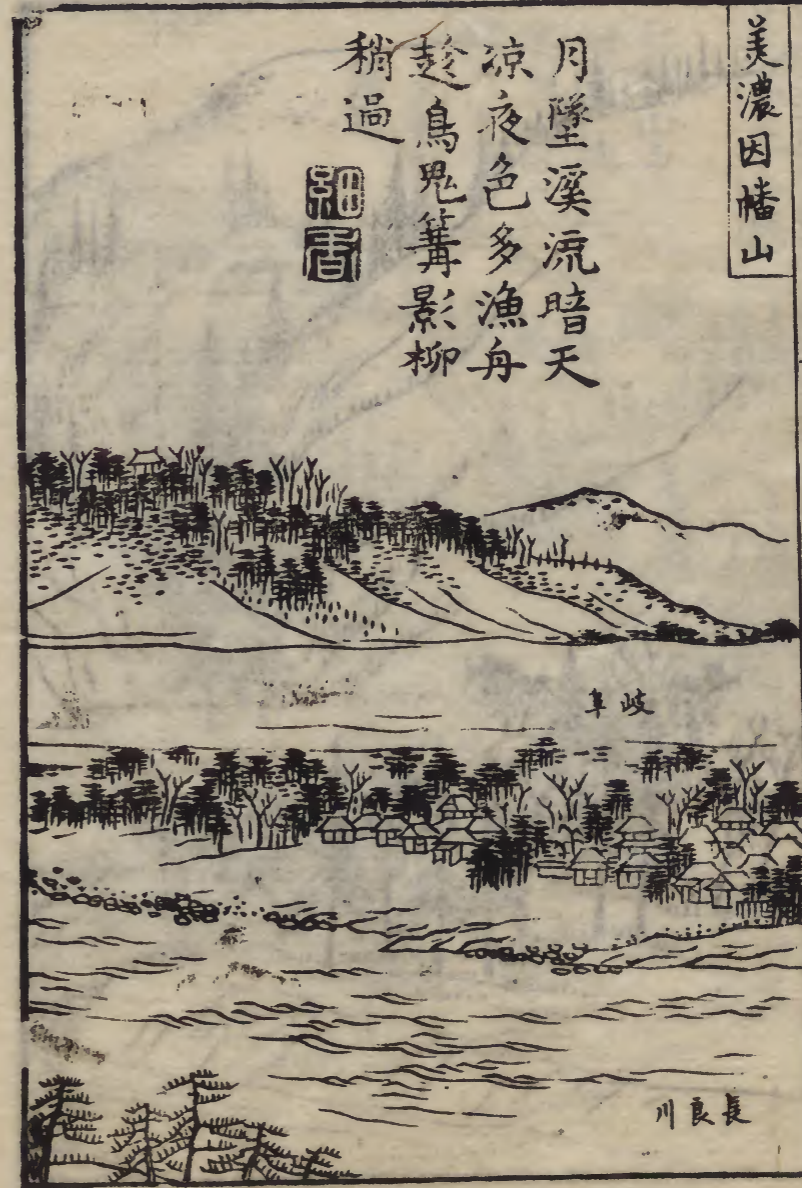 美濃因幡山
月墜溪流暗天
涼夜色多漁舟
趁鳥鬼篝影柳
稍過
細香
岐阜
長良川